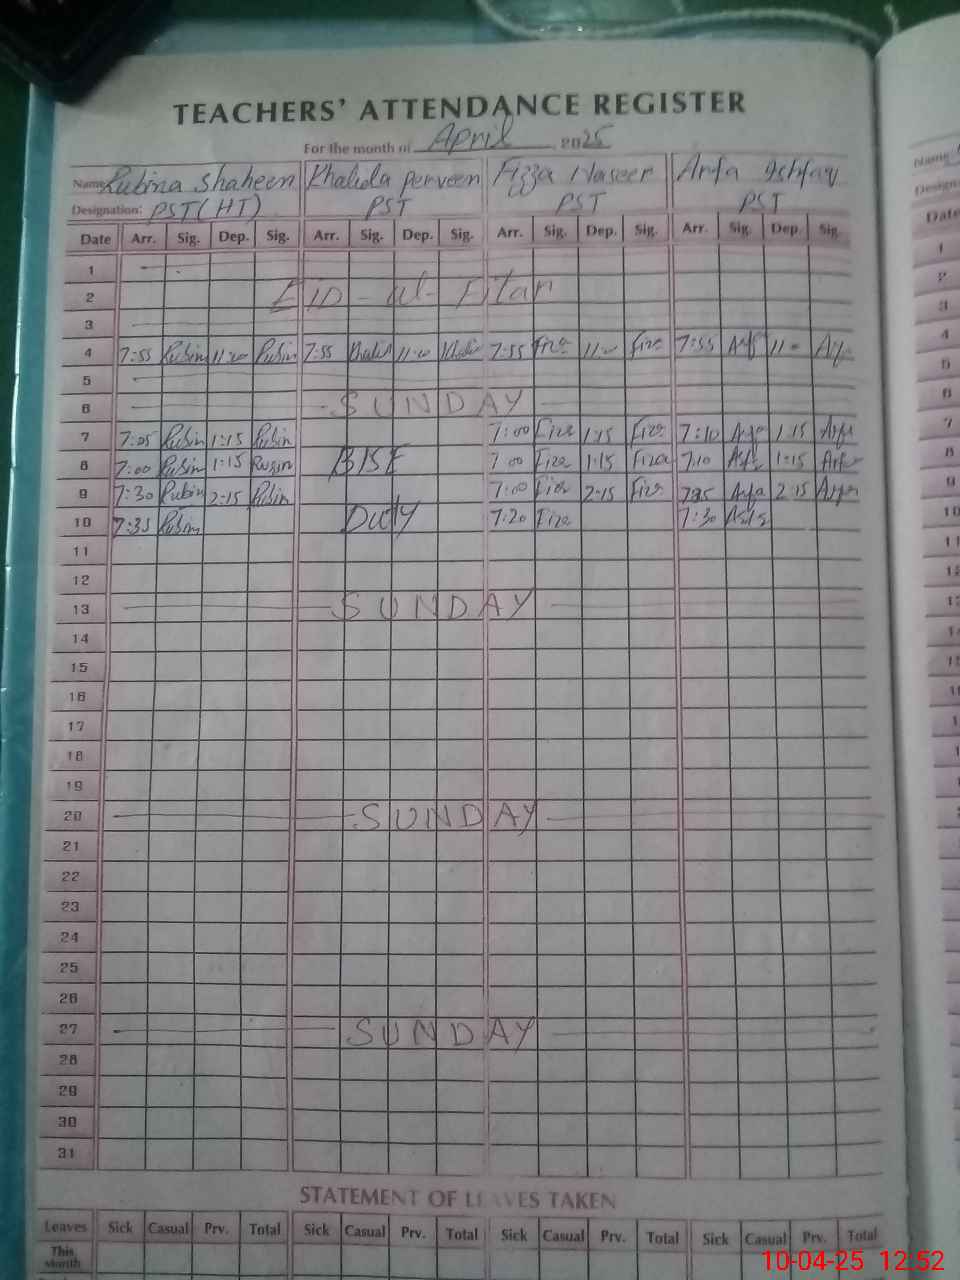 TEACHERS' ATTENDANCE REGISTER
For the month of April, 2025
Name Rubina Shaheen Khalida Perveen Fizza Naseer Arfa Ishfaq
Designation: PST(HT) PST PST PST
Date Arr. Sig. Dep. Sig. Arr. Sig. Dep. Sig. Arr. Sig. Dep. Sig. Arr. Sig. Dep. Sig.
1
2 Eid-ul-Fitar
3
4 7:55 Rubin 11:00 Rubin 7:55 Khalid 11:00 Khalid 7:55 Fiza 11:00 Fiza 7:55 Arf 11:00 Arfa
5
6 SUNDAY
7 7:05 Rubin 1:15 Rubin 7:00 Fiza 1:15 Fiza 7:10 Arfa 1:15 Arfa
8 7:00 Rubin 1:15 Rubin BISE 7:00 Fiza 1:15 Fiza 7:10 Arfa 1:15 Arfa
9 7:30 Rubin 2:15 Rubin 7:00 Fiza 2:15 Fiza 7:35 Arfa 2:15 Arfa
10 7:35 Rubin Duty 7:20 Fiza 7:30 Arfa
11
12
13 SUNDAY
14
15
16
17
18
19
20 SUNDAY
21
22
23
24
25
26
27 SUNDAY
28
29
30
31
STATEMENT OF LEAVES TAKEN
Leaves Sick Casual Prv. Total Sick Casual Prv. Total Sick Casual Prv. Total Sick Casual Prv. Total
This
Month
10-04-25 12:52